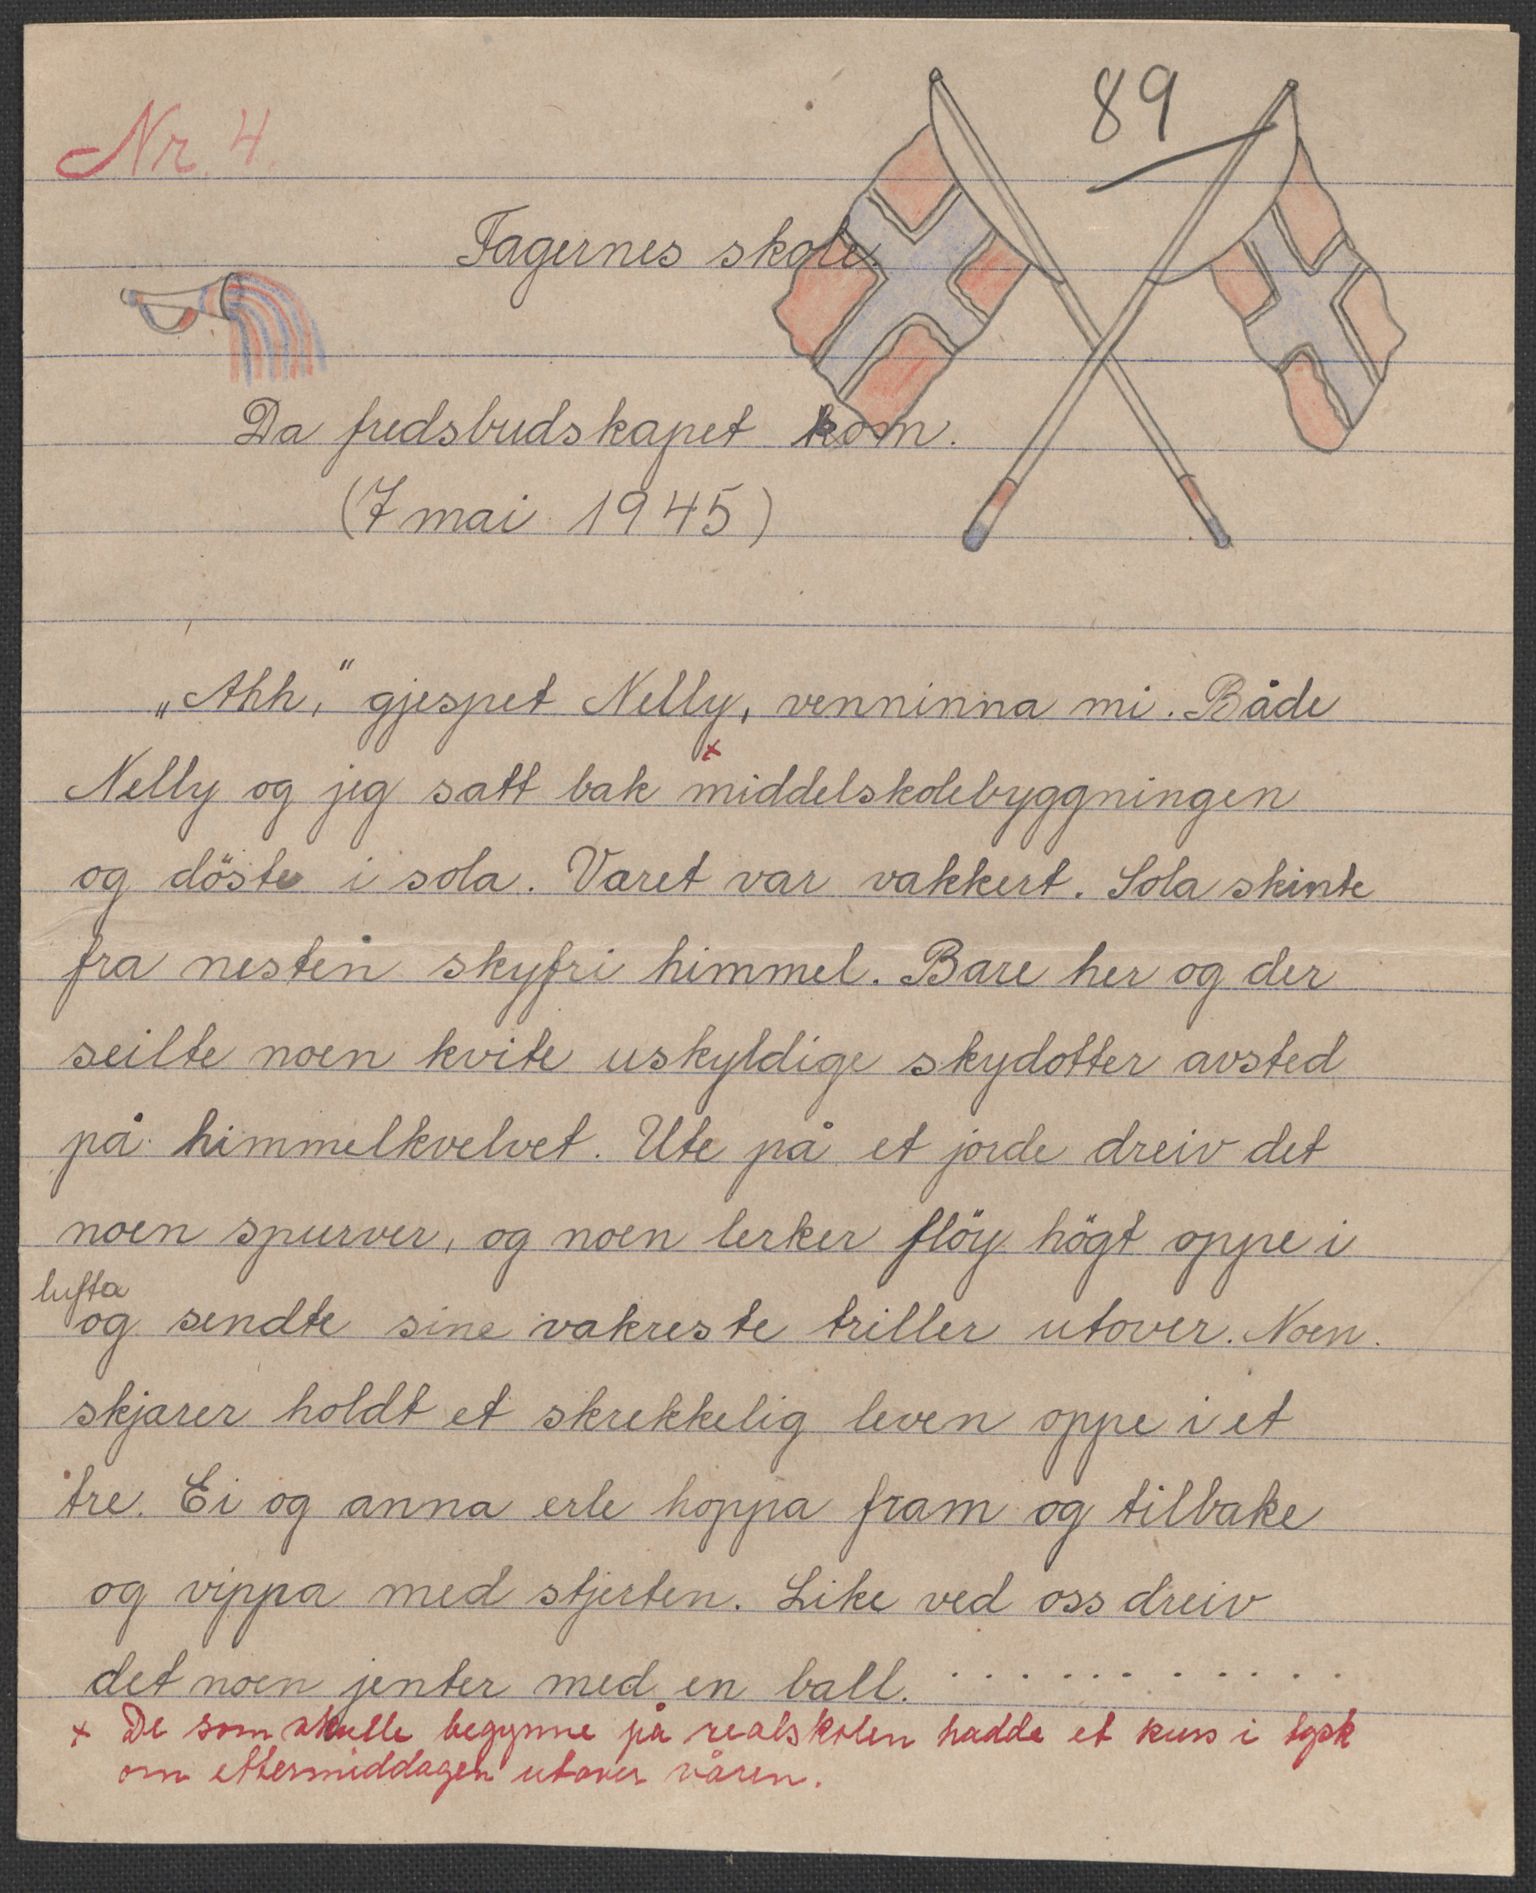 Nr. 4.
89
Fagernes skole.
Da fredsbudskapet kom.
(7 mai 1945)
„Ahh," gjespet Nelly, venninna mi. Både
Nelly og jeg satt bak x middelskolebyggningen
og döste i sola. Været var vakkert. Sola skinte
fra nesten skyfri himmel. Bare her og der
seilte noen kvite uskyldige skydotter avsted
på himmelkvelvet. Ute på et jorde dreiv det
noen spurver, og noen lerker flöy högt oppe i
lufta
og sendte sine vakreste triller utover. Noen
skjærer holdt et skrekkelig leven oppe i et
tre. Ei og anna erle hoppa fram og tilbake
og vippa med stjerten. Like ved oss dreiv
det noen jenter med en ball. . . . . . . . . . . .
x De som skulle begynne på realskolen hadde et kurs i tysk
om ettermiddagen utover våren.